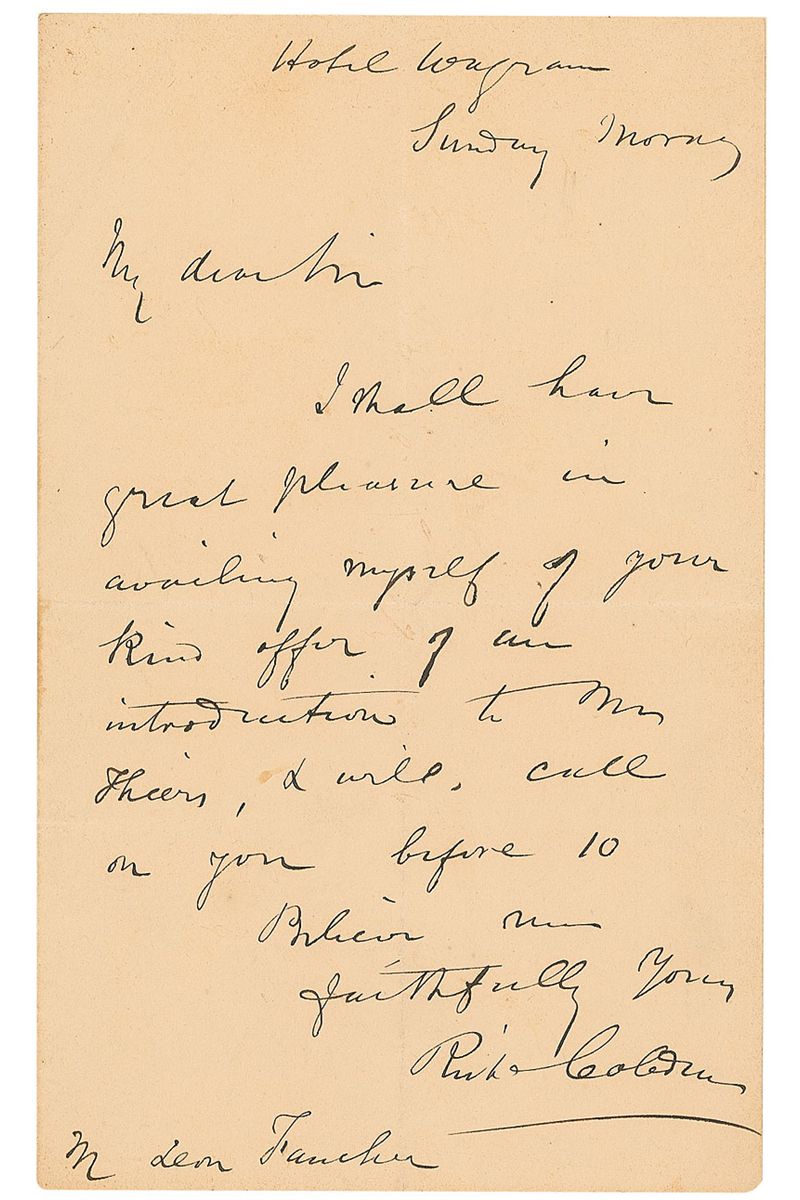 Hotel Wagram
Sunday Morng
My dear Sir
I shall have
great pleasure in
availing myself of your
kind offer of an
introduction to Mr
Thiers, & will, call
on you before 10
Believe me
faithfully Yours
Richd Cobden
M Leon Faucher